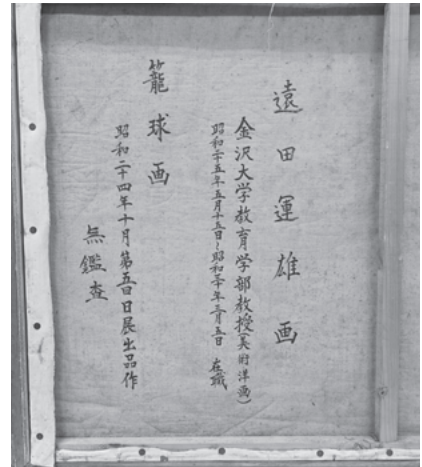 遠田運雄画
金沢大学教育学部教授(美術洋画)
昭和二十五年五月十五日~昭和三十年三月五日 在職
籠球画
昭和二十四年十月第五回日展出品作
無鑑査